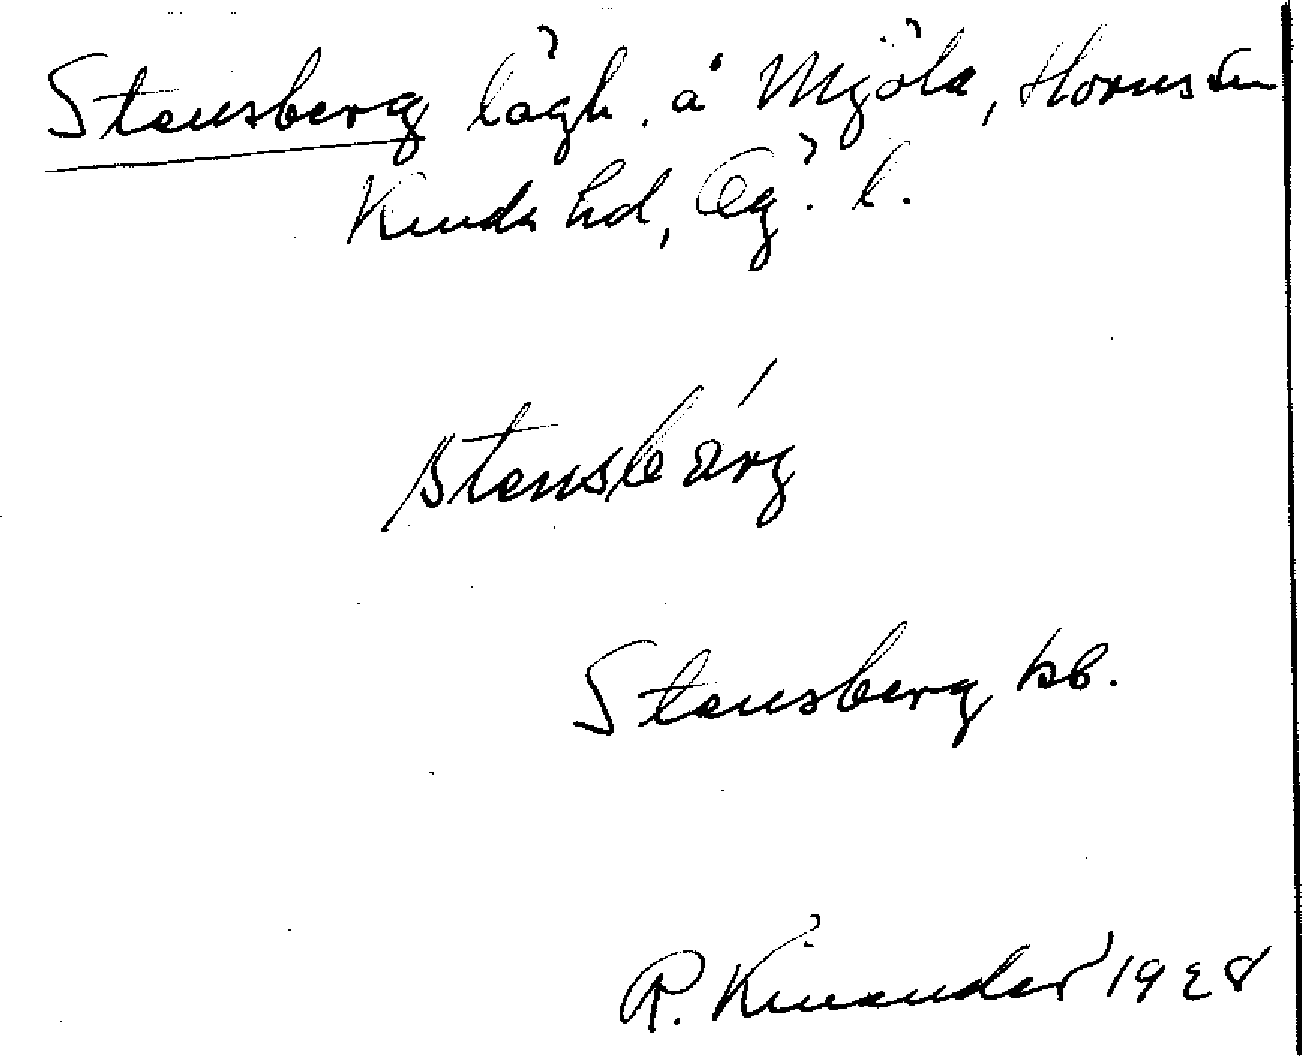 Stensberg lägh. å Mjöla, Horns sn
Kinda hd, Ög. l.
stensbärg
Stensberg kb.
R. Kinander 1928